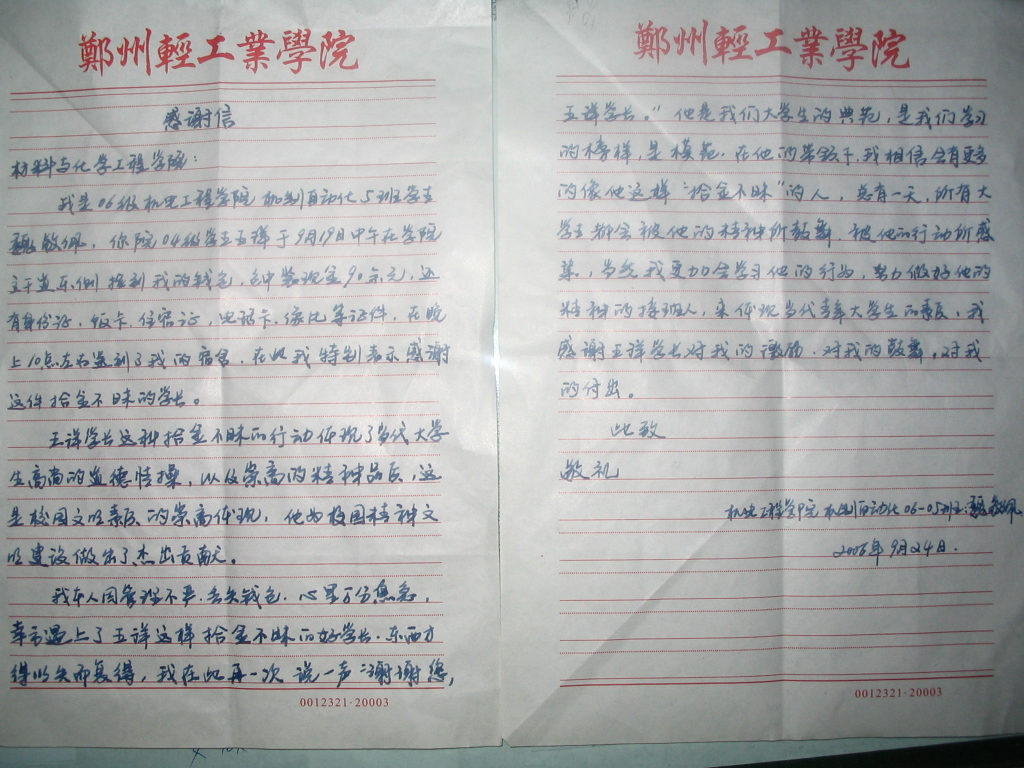 鄭州輕工業學院
感谢信
材料与化学工程学院：
我是06级机电工程学院机制自动化5班学生
魏敏佩，你院04级学生王祥于9月19日中午在学院
主干道东侧捡到我的钱包，包中装现金90余元，还
有身份证、饭卡、住宿证，电话卡、像片等证件，在晚
上10点左右送到了我的宿舍，在此我特别表示感谢
这位拾金不昧的学长。
王祥学长这种拾金不昧的行动体现了当代大学
生高尚的道德情操，以及崇高的精神品质，这
是校园文明素质的崇高体现，他为校园精神文
明建设做出了杰出贡献。
我本人因管理不严，丢失钱包，心里万分焦急，
幸亏遇上了王祥这样拾金不昧的好学长，东西才
得以失而复得，我在此再一次说一声“谢谢您，
0012321·20003
鄭州輕工業學院
王祥学长。”他是我们大学生的典范，是我们学习
的榜样，是模范。在他的带领下，我相信会有更多
的像他这样“拾金不昧”的人，总有一天，所有大
学生都会被他的精神所鼓舞，被他的行动所感
染，当然我更加会学习他的行为，努力做好他的
精神的接班人，来体现当代青年大学生的素质，我
感谢王祥学长对我的激励，对我的鼓舞，对我
的付出。
此致
敬礼
机电工程学院机制自动化06-05班：魏敏佩
2006年9月24日.
0012321·20003